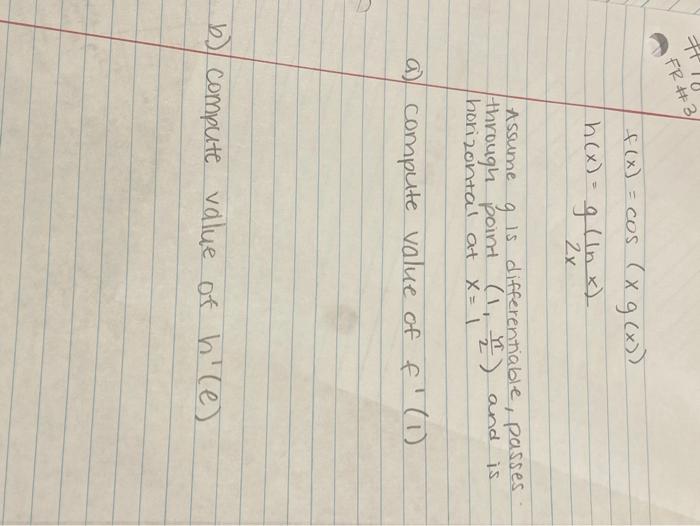 FR #3
f(x) = cos (x g(x))
h(x) = g(ln x)
2x
Assume g is differentiable, passes
through point (1, π/2) and is
horizontal at x = 1
a) compute value of f'(1)
b) compute value of h'(e)